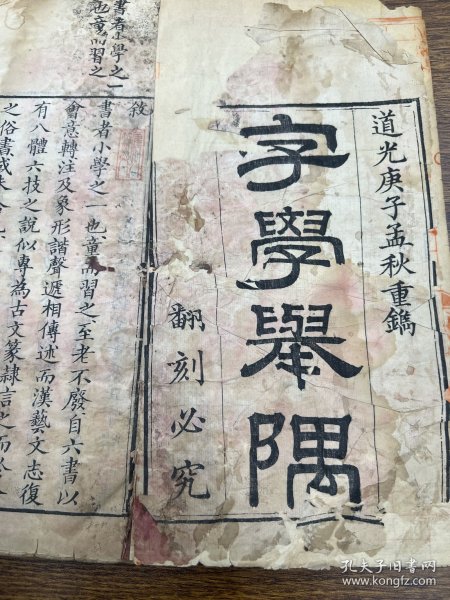 道光庚子孟秋重鐫
字學舉隅
翻刻必究
敘
書者小學之一也童而習之至老不廢自六書以
會意轉注及象形諧聲遞相傳述而漢藝文志復
有八體六技之說似專為古文篆隸言之而
之俗書或
書者小學之一
也童而習之
孔夫子旧书网
www.kongfz.com